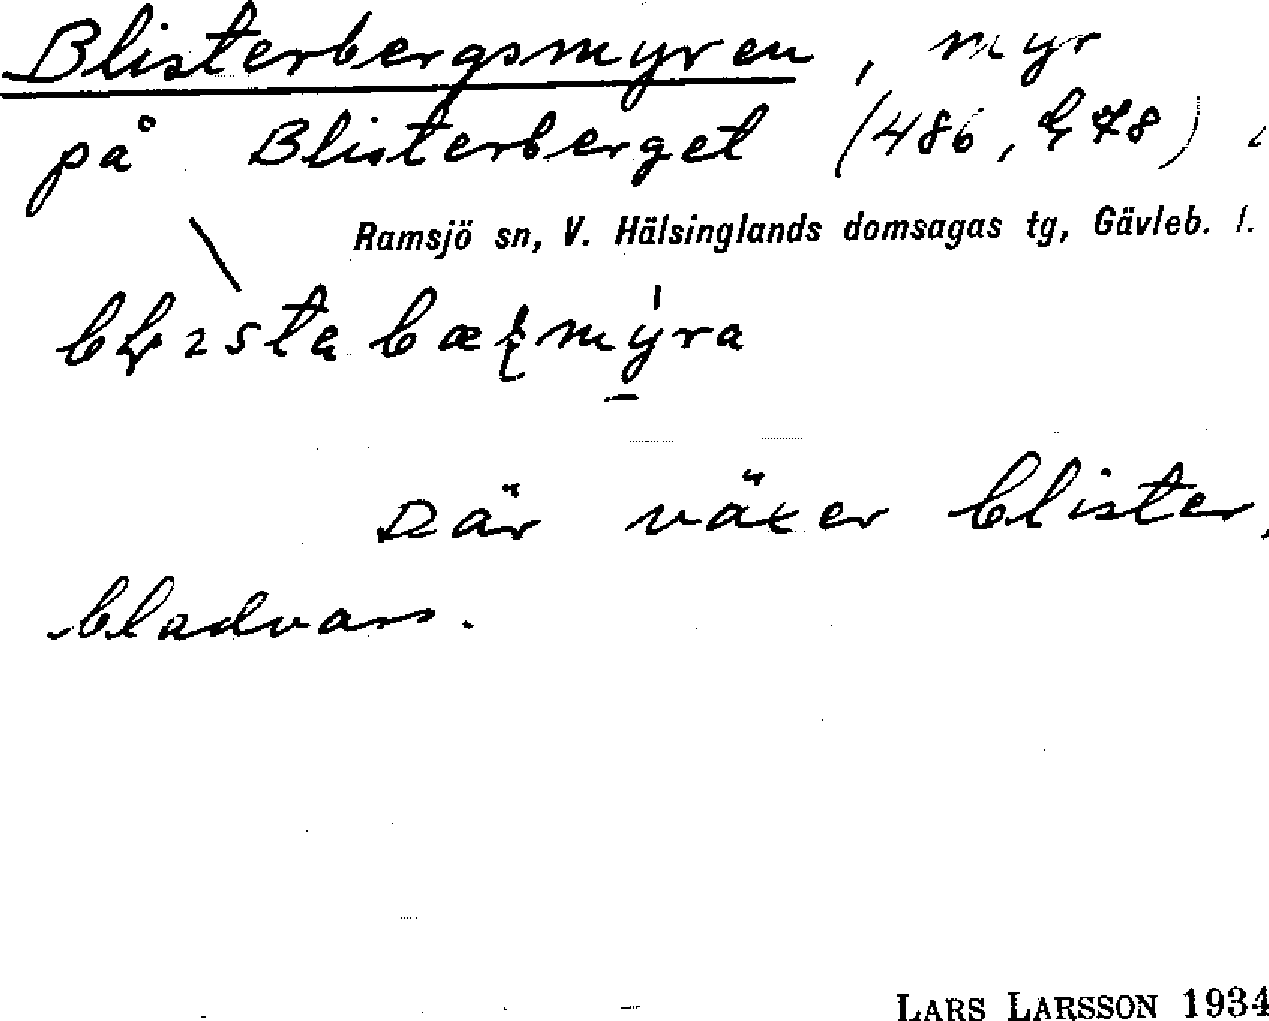 Blisterbergsmyren, myr
på Blisterberget (486, 478) i
Ramsjö sn, V. Hälsinglands domsagas tg, Gävleb. l.
Där växer blister,
bladvass.
LARS LARSSON 1934